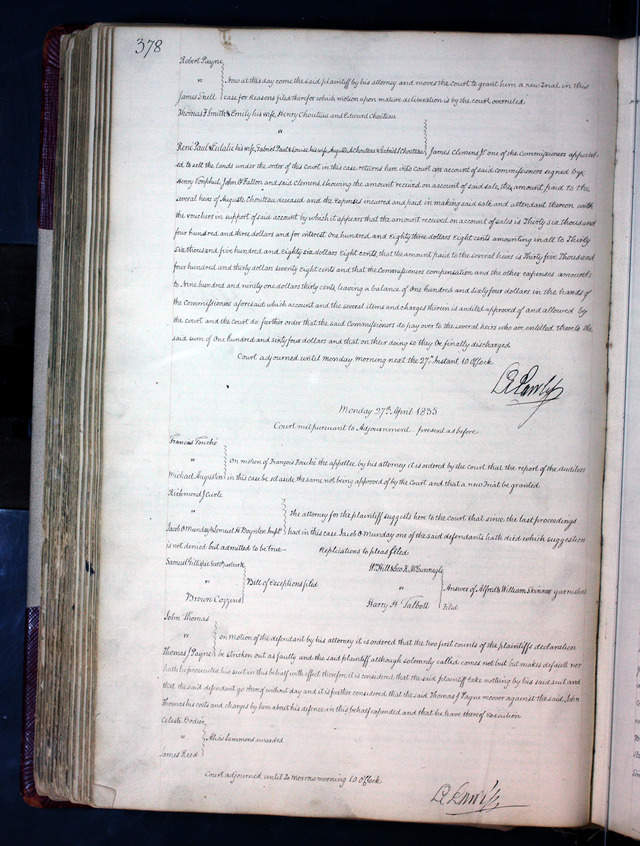 378
Robert Payne
"
now at this day come the said plaintiff by his attorney and moves the court to grant him a new Trial in this
James Snell case for Reasons filed therefor which motion upon mature deliberation is by the court overruled
Thomas F. Smith & Emily his wife, Henry Chouteau and Edward Chouteau
"
René Paul & Eulalie his wife, Gabriel Paul & Louise his wife, Auguste A Chouteau & Gabriel S Chouteau James Clemens Jr one of the Commissioners appoint-
ed to sell the lands under the order of this court in this case returns here into Court an account of said commissioners signed by
Henry Vonphul, John O'Fallon and said Clemens showing the amount received on account of said sale, the amount paid to the
several heirs of Auguste Chouteau deceased and the expenses incurred and paid in making said sale and attendant thereon with
the vouchers in support of said account by which it appears that the amount received on account of sales is Thirty six thousand
four hundred and three dollars and for interest one hundred and Eighty three dollars Eight cents amounting in all to Thirty
Six thousand five hundred and Eighty six dollars Eight cents, that the amount paid to the several heirs is Thirty five Thousand
four hundred and thirty dollars seventy eight cents and that the Commissioners compensation and the other expenses amounts
to Nine hundred and ninety one dollars thirty cents, leaving a balance of One hundred and sixty four dollars in the hands of
the Commissioners aforesaid which account and the several items and charges therein is audited approved of and allowed by
the court and the court do further order that the said Commissioners do pay over to the several heirs who are entitled thereto the
said sum of One hundred and sixty four dollars and that on their doing so they be finally discharged
Court adjourned until Monday morning next the 27th Instant 10 O'Clock
Monday 27th April 1835
Court met pursuant to Adjournment present as before
Francis Fouché
"
on motion of François Fouché the appellee by his attorney it is ordered by the court that the report of the Auditors
Michael Augustin in this case be set aside the same not being approved of by the Court and that a new Trial be granted
Richmond J Curle
"
The attorney for the plaintiff suggests here to the court that since the last proceedings
Jacob O Munday & Samuel H Boynton Impld had in this case Jacob O Munday one of the said defendants hath died which suggestion
is not denied but admitted to be true— Replications to pleas filed
Samuel Gillespie
"
Bill of exceptions filed
Brown Cozzens
Wm Hill & Geo. K. McGunnegle
"
Answer of Alfred & William Skinner garnishees
Harry H Talbott filed
John Thomas
"
on motion of the defendant by his attorney it is ordered that the two first counts of the plaintiffs declaration
Thomas J Payne be stricken out as faulty and the said plaintiff although solemnly called comes not but makes default nor
hath he prosecuted his suit in this behalf with effect therefore it is considered that the said plaintiff take nothing by his said suit and
that the said defendant go thereof without day and it is further considered that the said Thomas J Payne recover against the said John
Thomas his costs and charges by him about his defence in this behalf expended and that he have thereof execution
Celeste Bodin
"
Alias Summons awarded
James Reed
Court adjourned until To morrow morning 10 O'Clock